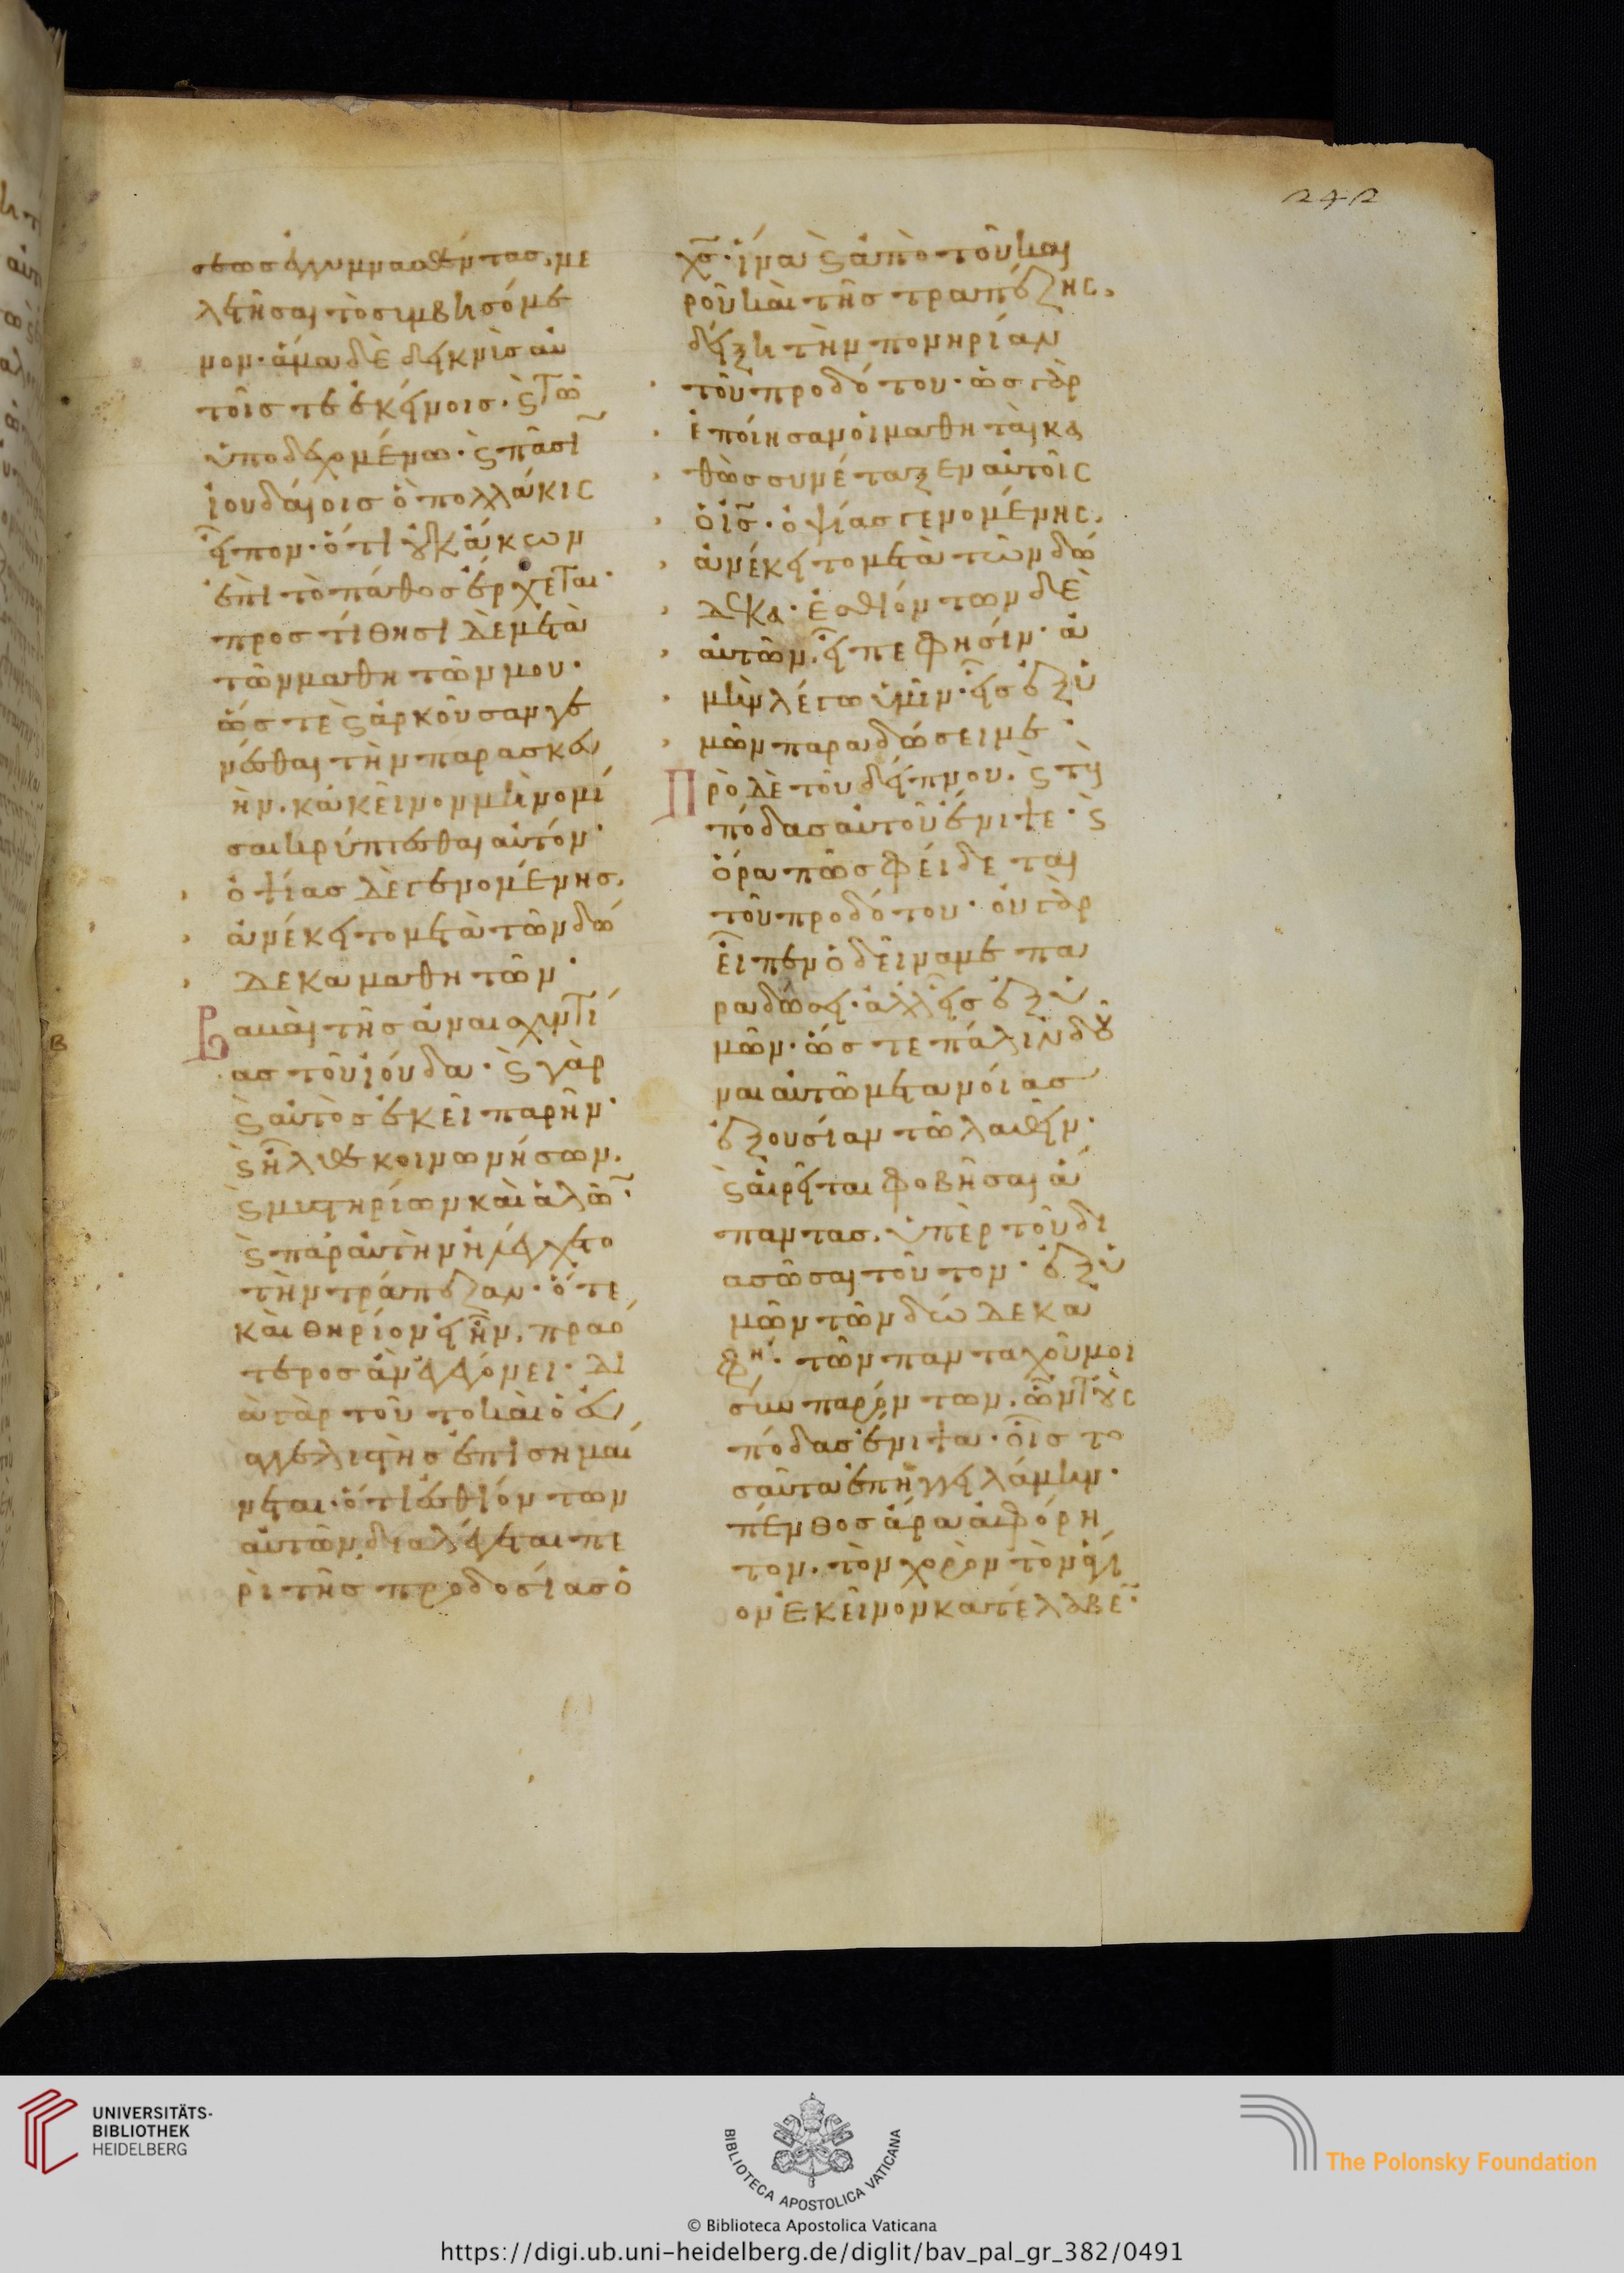 στεως ἐγγυμνασθέντας, με
λετῆσαι τὸ συμβησόμε
νον· ἅμα δὲ δεικνὺς αὐ
τοῖς τε ἐκείνοις· ϛ τῶ
ὑποδεχομένω· ϛ πᾶσῖ
ἰουδαίοις ὃ πολλάκις
εἶπον· ὅτι οὐκ ἄκων
ἐπὶ τὸ πάθος ἔρχεται·
προστίθησι δὲ μετὰ
τῶν μαθητῶν μου·
ὥστε ϛ ἀρκοῦσαν γε
νέσθαι τὴν παρασκευ
ὴν. κἀκεῖνον μὴ νομί
σαι κρύπτεσθαι αὐτόν·
ὀψίας δὲ γενομένης,
ἀνέκειτο μετὰ τῶν δώ
δεκα μαθητῶν·
Βαβαὶ τῆς ἀναισχυντί
ας τοῦ ἰούδα· ϛ γὰρ
ϛ αὐτὸς ἐκεῖ παρῆν·
ϛ ἦλθε κοινωνήσων.
ϛ μυστηρίων καὶ ἁλῶ̅·
ϛ παρ' αὐτὴν ἠλέγχετο
τὴν τράπεζαν· ὅτε
καὶ θηρίον εἰ ἦν, πραό
τερος ἂν ἐγεγόνει· δι
ὰ γὰρ τοῦτο καὶ ὁ εὐ
αγγελιστὴς ἐπισημαί
νεται· ὅτι ἐσθιόντων
αὐτῶν, διαλέγεται πε
ρὶ τῆς προδοσίας ὁ
242
χ̅ς̅· ἵνα ϛ ἀπὸ τοῦ και
ροῦ καὶ τῆς τραπέζης,
δείξη τὴν πονηρίαν
τοῦ προδότου· ὡς γὰρ
ἐποίησαν οἱ μαθηταὶ κα
θὼς συνέταξεν αὐτοῖς
ὁ ι̅ς̅· ὀψίας γενομένης,
ἀνέκειτο μετὰ τῶν δώ
δεκα· ἐσθιόντων δὲ
αὐτῶν, εἶπε φησίν· ἀ
μὴν λέγω ὑμῖν· εἷς ἐξ ὑ
μῶν παραδώσει με·
Πρὸ δὲ τοῦ δείπνου, ϛ τοὺς
πόδας αὐτοῦ ἔνιψε· ϛ
ὅρα πῶς φείδεται
τοῦ προδότου· οὐ γὰρ
εἶπεν ὁ δεῖνα με πα
ραδώσει· ἀλλ' εἷς ἐξ ὑ
μῶν· ὥστε πάλιν δοῦ
ναι αὐτῶ μετανοίας
ἐξουσίαν τῶ λαθεῖν·
ϛ αἱρεῖται φοβῆσαι ἅ
παντας, ὑπὲρ τοῦ δι
ασῶσαι τοῦτον· ἐξ ὑ
μῶν τῶν δώδεκα
φη· τῶν πανταχοῦ μοι
συμπαρόντων, ὧν τοὺς
πόδας ἔνιψα· οἷς το
σαῦτα ἐπηγγειλάμην·
πένθος ἄρα ἀφόρη
τον, τὸν χορὸν τὸν ἅγι
ον ἐκεῖνον κατέλαβε̅·
UNIVERSITÄTS-
BIBLIOTHEK
HEIDELBERG
BIBLIOTECA APOSTOLICA VATICANA
© Biblioteca Apostolica Vaticana
The Polonsky Foundation
https://digi.ub.uni-heidelberg.de/diglit/bav_pal_gr_382/0491